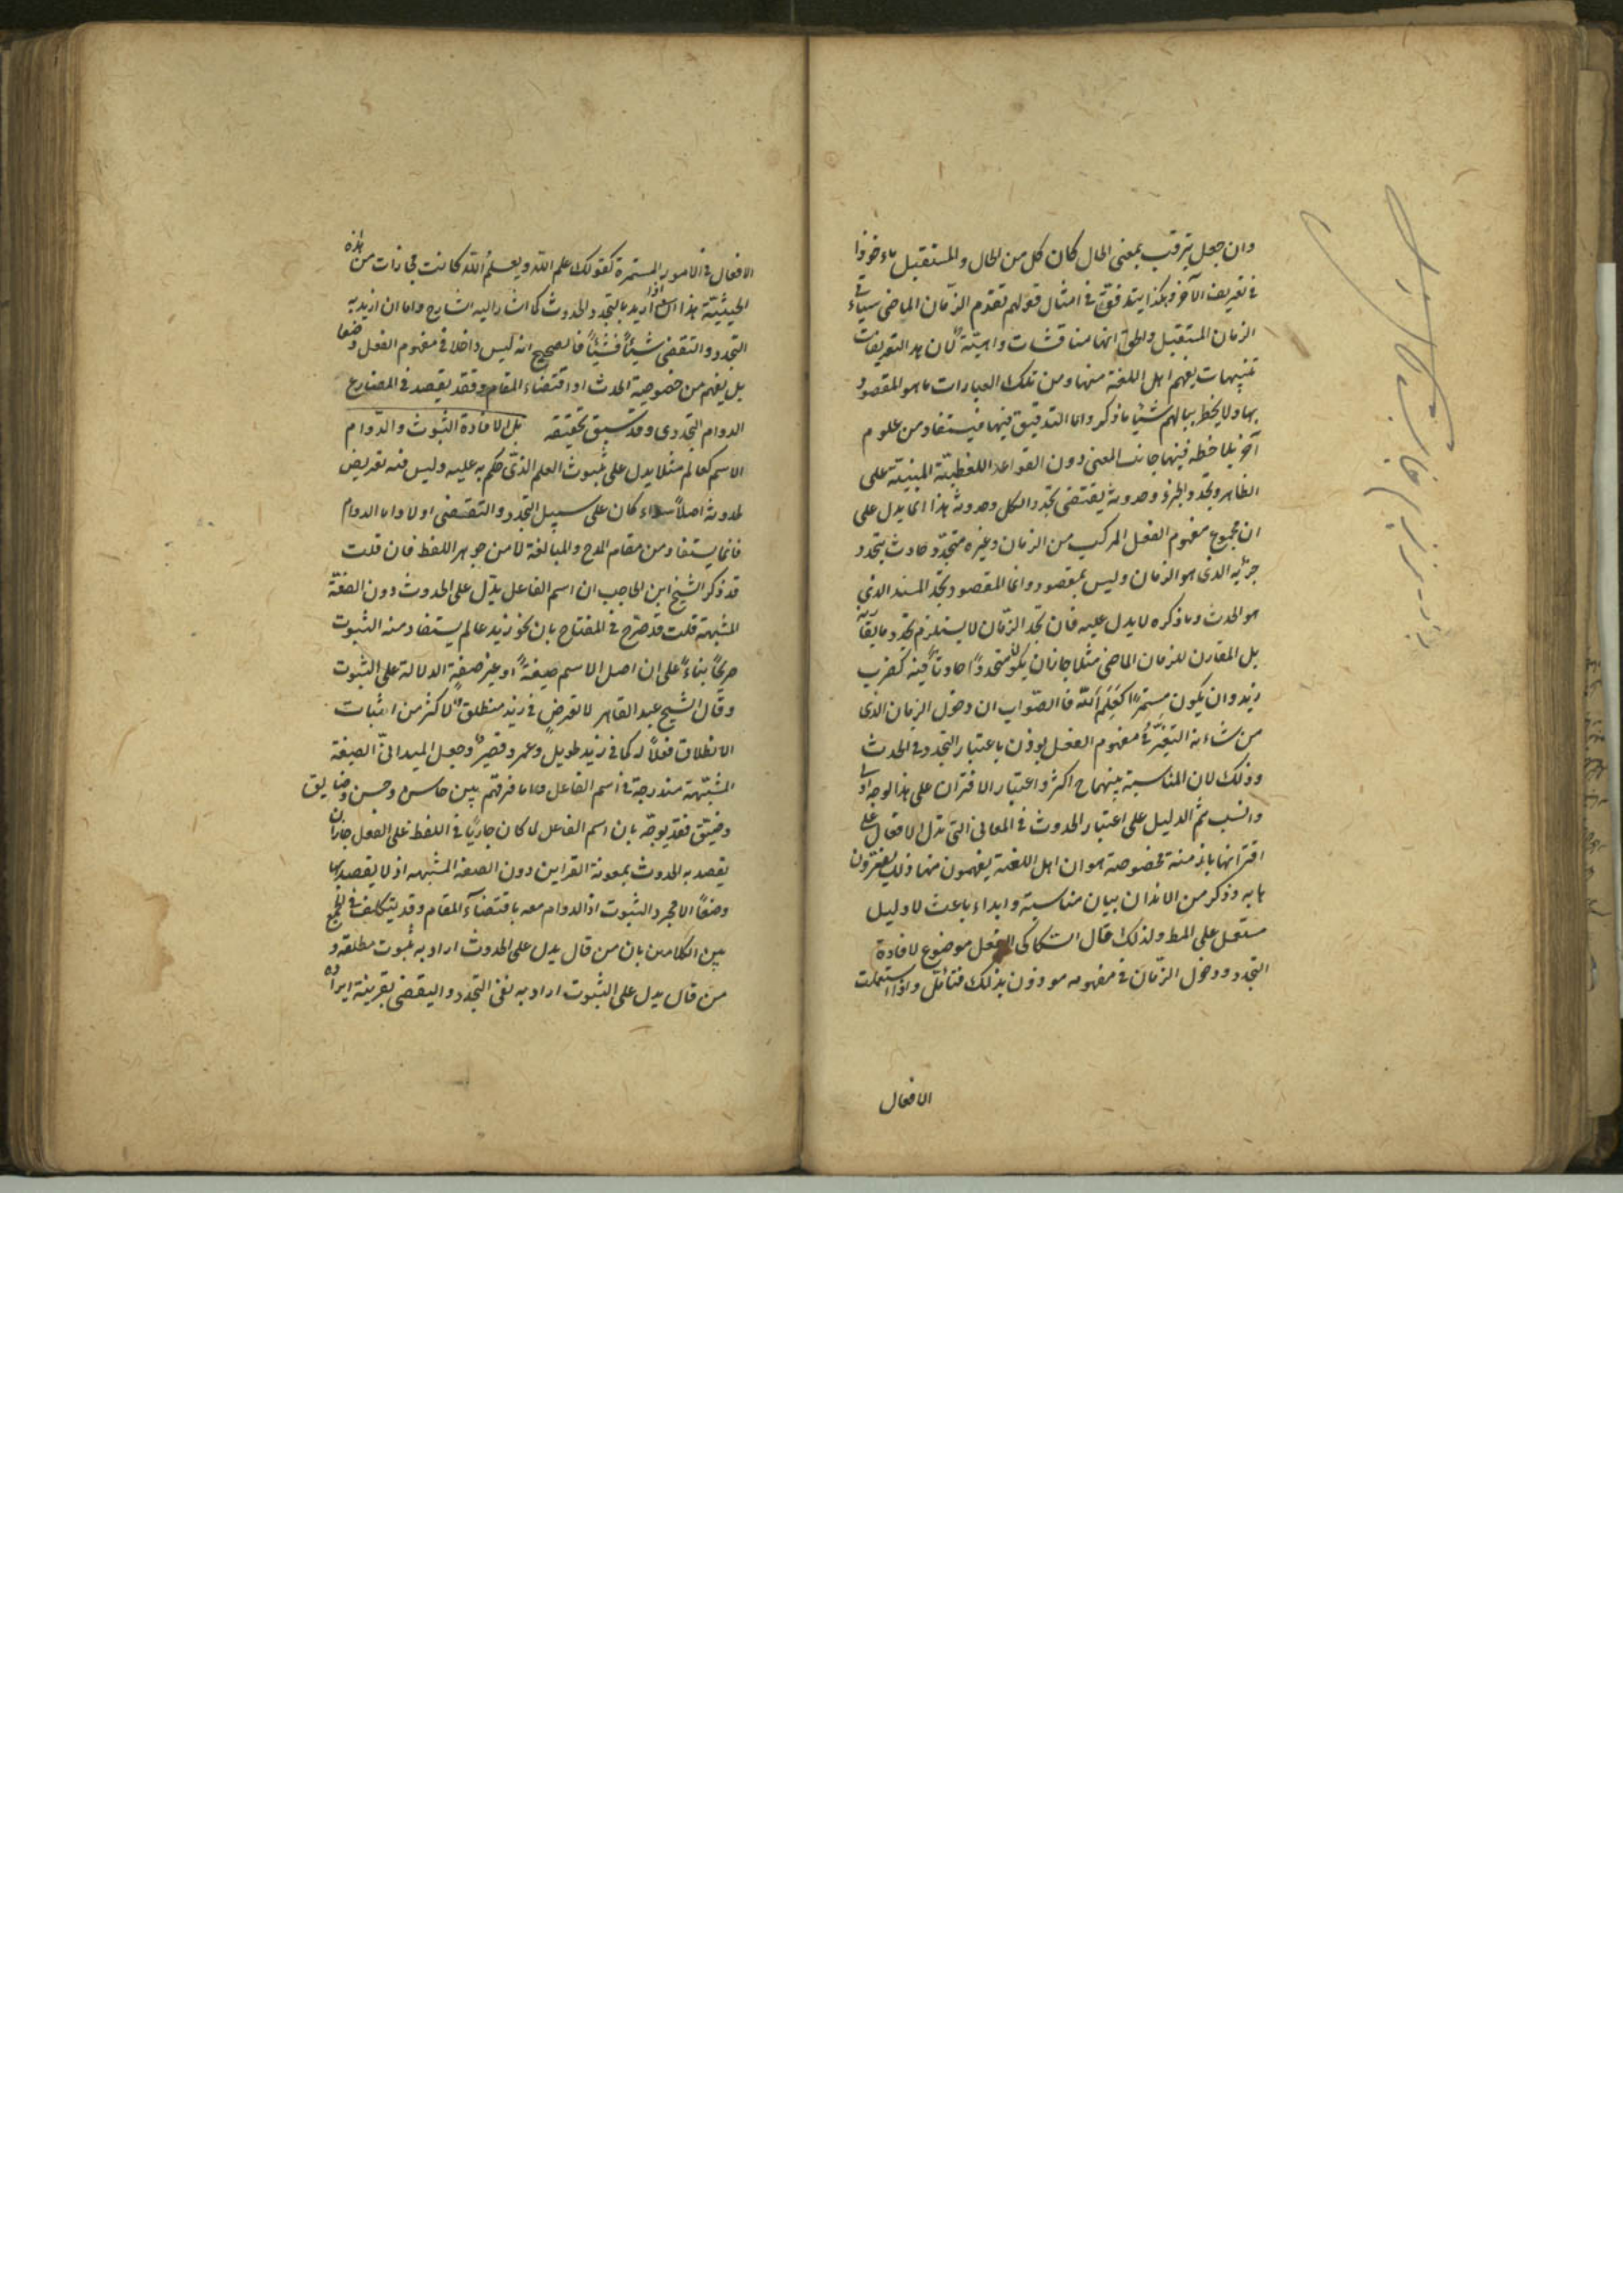 وان جعل يترقب بمعنى الحال كان كل من الحال والمستقبل ماءخوذا
في تعريف الآخر وهكذا يتدقق في امثال قولهم تقدم الزمان الماضي سيأتي
الزمان المستقبل والحق انها مناقشات واهية لان هذه التعريفات
تنبيهات يفهم اهل اللغة منها ومن تلك العبارات ما هو المقصود
بها ولا يخطر ببالهم شيئا ما ذكر واما التدقيق فيها فيستفاد من علوم
آخر يلاحظ فيها جانب المعنى دون القواعد اللفظية المبنية على
الظاهر وتجدد الجزء وحدوثه يقتضي تجدد الكل وحدوثه هذا انما يدل على
ان مجموع مفهوم الفعل المركب من الزمان وغيره متجدد حادث بتجدد
جزئه الذي هو الزمان وليس بمقصود وانما المقصود تجدد المسند الذي
هو الحدث وما ذكره لا يدل عليه فان تجدد الزمان لا يستلزم تجدد ما يقارنه
بل المقارن للزمان الماضي مثلا جاز ان يكون متجددا حادثا فيه كضرب
زيد وان يكون مستمرا كعلم الله فالصواب ان دخول الزمان الذي
من شاءنه التغير في مفهوم الفعل يوذن باعتبار التجدد في الحدث
وذلك لان المناسبة بينهما ح اكثر واعتبار الاقتران على هذا الوجه اولى
وانسب ثم الدليل على اعتبار الحدوث في المعاني التي تدل الافعال على
اقترانها بازمنة مخصوصة هو ان اهل اللغة يفهمون منها ذلك
وما ذكر من الايذان بيان مناسبة وابداء باعث لا دليل
مستقل على المط ولذلك قال السكاكى الفعل موضوع لافادة
التجدد ودخول الزمان في مفهومه موذون بذلك فتأمل واذا استعملت
الافعال
الافعال في الامور المستمرة كقولك علم الله ويعلم الله كانت مجازات من هذه
الحيثية هذا اذا اريد بالتجدد الحدوث كما اشار اليه الشارح واما ان اريد به
التجدد والتقضي شيئا فشيئا فالصحيح انه ليس داخلا في مفهوم الفعل وضعا
بل يفهم من خصوصية الحدث او اقتضاء المقام وقد يقصد في المضارع
الدوام التجددى وقد سبق تحقيقه بل لافادة الثبوت والدوام
الاسم كعالم مثلا يدل على ثبوت العلم الذي حكم به عليه وليس فيه تعريض
لحدوثه اصلا سواء كان على سبيل التجدد والتقضي اولا واما الدوام
فانما يستفاد من مقام المدح والمبالغة لا من جوهر اللفظ فان قلت
قد ذكر الشيخ ابن الحاجب ان اسم الفاعل يدل على الحدوث دون الصفة
المشبهة قلت قد صرح في المفتاح بان نحو زيد عالم يستفاد منه الثبوت
صريحا بناء على ان اصل الاسم صيغة او غير صفة الدلالة على الثبوت
وقال الشيخ عبد القاهر لا تعرض في زيد منطلق لاكثر من اثبات
الانطلاق فعلا له كما في زيد طويل وعمرو قصير وجعل الميداني الصفة
المشبهة مندرجة في اسم الفاعل واما فرقهم بين حاسن وحسن وضايق
وضيق فقد يوجه بان اسم الفاعل لما كان جاريا في اللفظ على الفعل جاز ان
يقصد به الحدوث بمعونة القراين دون الصفة المشبهه اذ لا يقصد بها
وضعا الا مجرد الثبوت اذ الدوام معه باقتضاء المقام وقد يتكلف في الجمع
بين الكلامين بان من قال يدل على الحدوث اراد به ثبوت مطلقه و
من قال يدل على الثبوت اراد به نفى التجدد والتقضى بقرينة ايراده